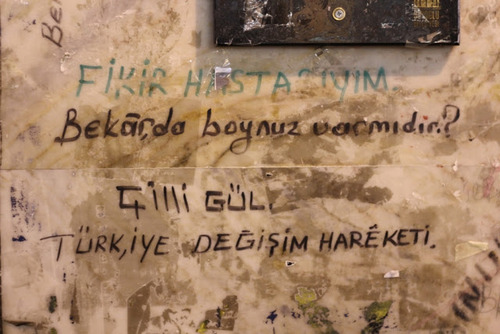 Be
FİKİR HASTASIYIM.
Bekârda boynuz varmıdır.?
Çilli GÜL.
TÜRK,İYE DEĞİŞİM HARÊKETİ.